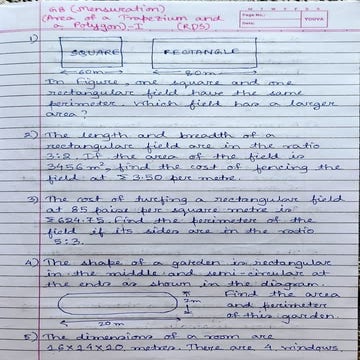 G8 (Mensuration)
(Area of a Trapezium and
a Polygon)-I (RDS)
M T W T F S S
Page No.:
Date:
YOUVA
1)
SQUARE RECTANGLE
60m 80m
In figure, one square and one
rectangular field have the same
perimeter. Which field has a larger
area?
2) The length and breadth of a
rectangular field are in the ratio
3:2. If the area of the field is
3456m², find the cost of fencing the
field at ₹ 3.50 per metre.
3) The cost of turfing a rectangular field
at 85 paise per square metre is
₹624.75. Find the perimeter of the
field if its sides are in the ratio
5:3.
4) The shape of a garden is rectangular
in the middle and semi-circular at
the ends as shown in the diagram.
Find the area
and perimeter
of this garden.
7m
20m
5) The dimensions of a room are
16×14×20 metres. There are 4 windows